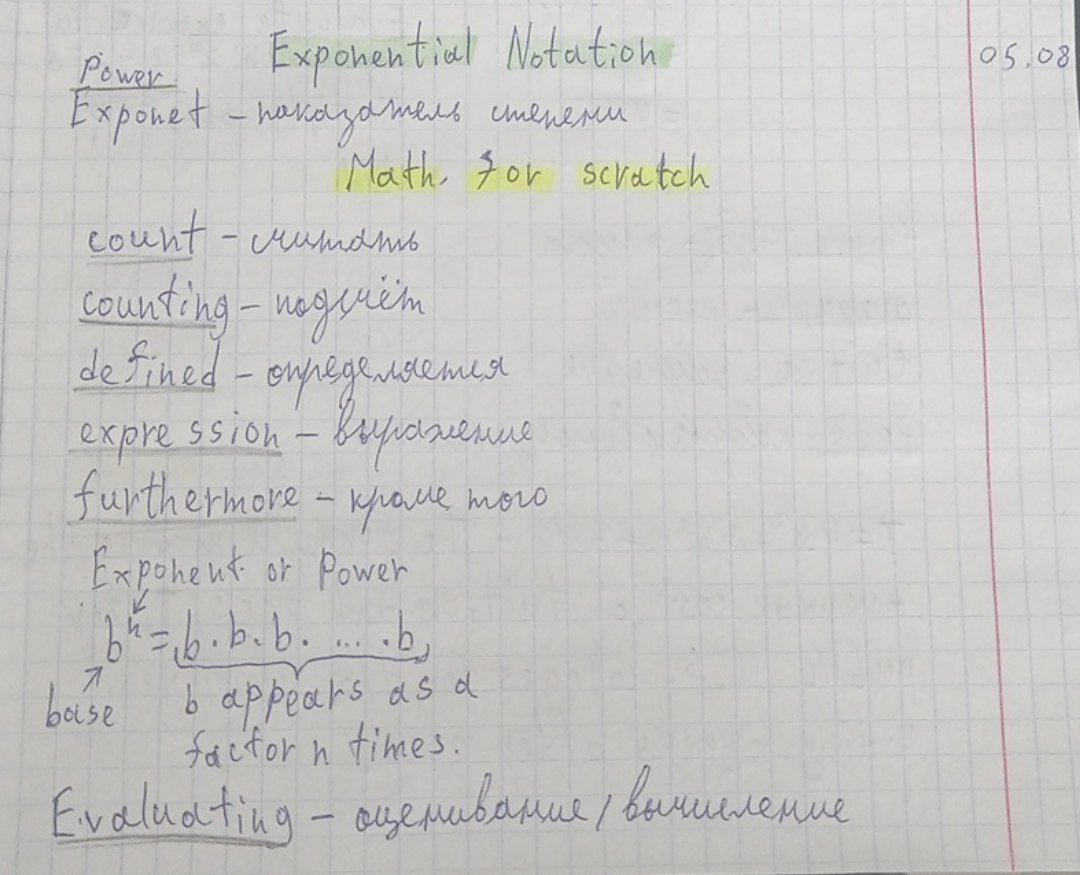 Exponential Notation
05.08
Power
Exponet - показатель степени
Math. for scratch
count - считать
counting - подсчёт
defined - определяется
expression - выражение
furthermore - кроме того
Exponent or Power
bⁿ = b · b · b · ... · b,
base
b appears as a
factor n times.
Evaluating - оценивание/вычисление